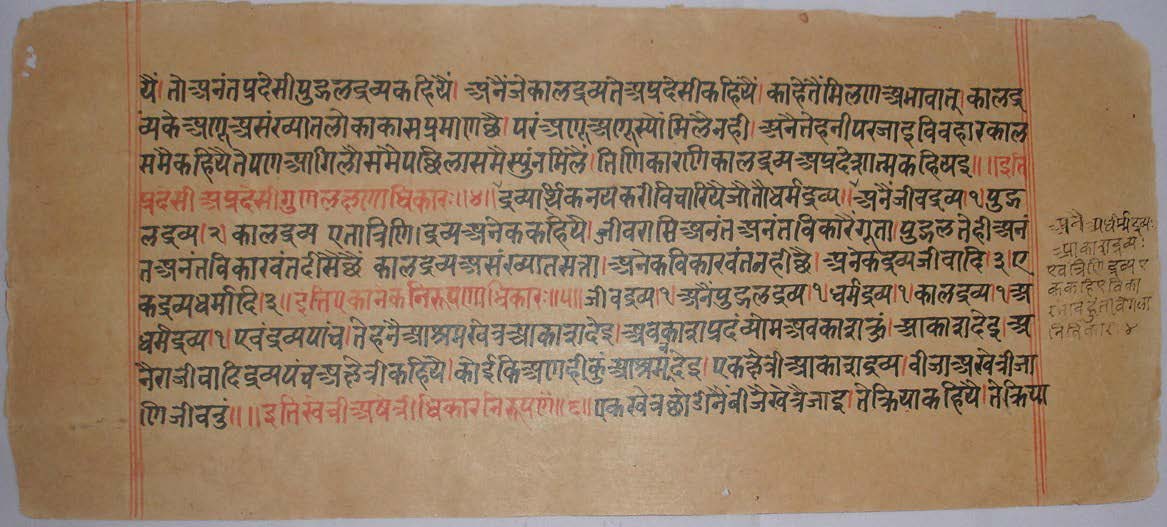 यैं। तो अनंतप्रदेसी पुद्गलद्रव्य कहियैं। अनैं जे कालद्रव्य ते अप्रदेसी कहियैं। काहेतैं मिलण अभावात्। कालद्र
व्यके अणू असंख्यात लोकाकासप्रमाण छै। परं अणू अणूस्यों मिलै नही। अनै तेहनी परजाइ विवहारकाल
समै कहियै ते पण आगिलौ समै पछिला समैस्युं न मिलैं। तिणि कारणि कालद्रव्य अप्रदेशात्मक कहियइ॥ ॥इति
प्रदेसी अप्रदेसी गुणलक्षणाधिकारः॥४॥ द्रव्यार्थिकनय करी विचारियै जौ तो धर्मद्रव्य। अनैं जीवद्रव्य १। पुद्ग
लद्रव्य। २। कालद्रव्य एता त्रिणि। द्रव्य अनेक कहियै। जीवरासि अनंत अनंत विकारैं गूता। पुद्गल तेही अनं
त अनंत विकारवंत दीसै छैं कालद्रव्य असंख्यात सत्ता। अनेक विकारवंत नही छै। अनेक द्रव्य जीवादि। ३। ए
क द्रव्य धर्मादि। ३॥ इति एकानेक निरुपणाधिकारः॥५॥ जीवद्रव्य। १। अनैं पुद्गलद्रव्य। १। धर्मद्रव्य। १। कालद्रव्य। १। अ
धर्मद्रव्य। १। एवं द्रव्य पांच। तेहनै आश्रम खेत्र आकाश देइ।
नेरा जीवादि द्रव्य पंच अक्षेत्री कहियै। कोई किं अणही कुं आश्रम न देइ। एक क्षेत्री आकाशद्रव्य। बीजा अखेत्री जा
णि जीवतुं॥ ॥इति खेत्री अषेत्री धिकार निरुपणं॥६॥ एक खेत्र छोडीनैं बीजै खेत्रै जाइ। ते क्रिया कहियै। ते क्रिया